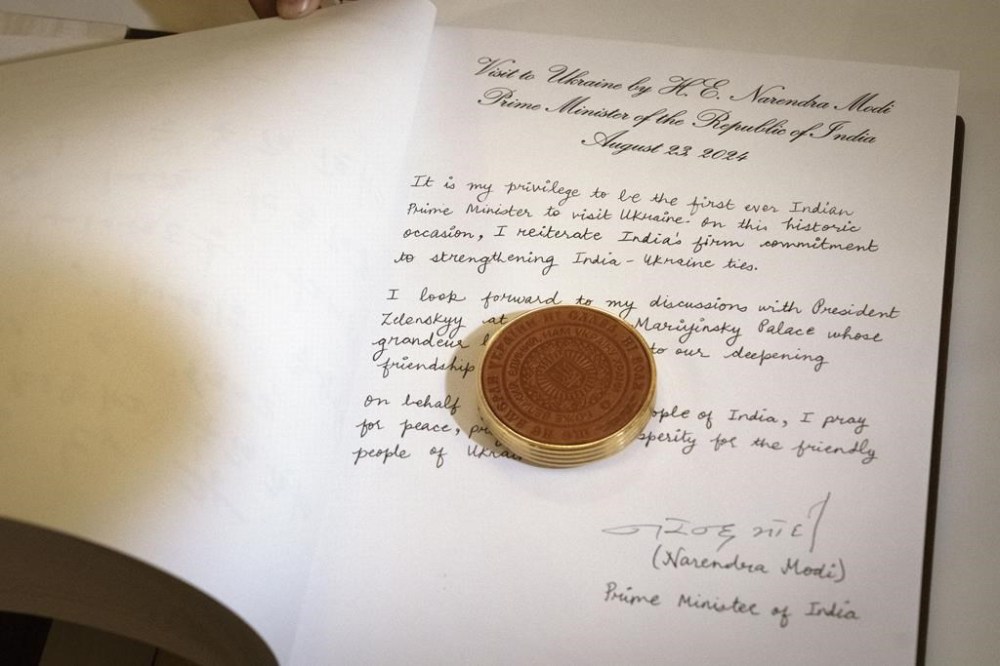 Visit to Ukraine by H. E. Narendra Modi
Prime Minister of the Republic of India
August 23 2024
It is my privilege to be the first ever Indian
Prime Minister to visit Ukraine. On this historic
occasion, I reiterate India's firm commitment
to strengthening India - Ukraine ties.
I look forward to my discussions with President
Zelenskyy at Mariyinsky Palace whose
grandeur to our deepening
friendship
On behalf of India, I pray
for peace, for the friendly
people of
(Narendra Modi)
Prime Minister of India